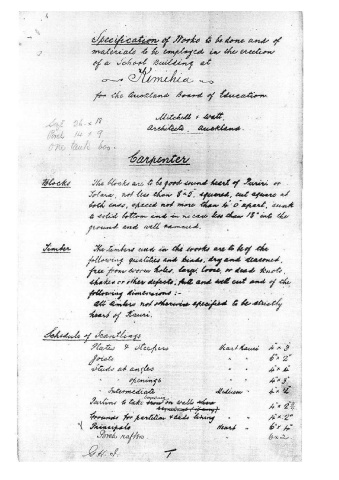 Specification of Works to be done and of
materials to be employed in the erection
of a School Building at
Kimihia
for the Auckland Board of Education.
Mitchell & Watt,
Architects Auckland.
one tank 600.
Carpenter
Blocks The blocks are to be good sound heart of Puriri or
Totara, not less than squared, cut square at
both ends, spaced not more than 4' 0" apart, sunk
a solid bottom and in no case less than 18" into the
ground and well rammed.
Timber The timbers used in the works are to be of the
following qualities and kinds, dry and seasoned,
free from worm holes, large, loose, or dead knots,
shakes or other defects, full and well cut and of the
following dimensions:-
All timbers not otherwise specified to be strictly
heart of Kauri.
Schedule of Scantlings
Plates & Sleepers Heart Kauri 4" x 3"
Joists " "
Studs at angles " " 4" x 4"
" openings " " 4" x 3"
" Intermediate Medium "
Purlins to take on walls
Grounds for partition & dado lining "
Principals Heart "
Porch rafters 6 x 2